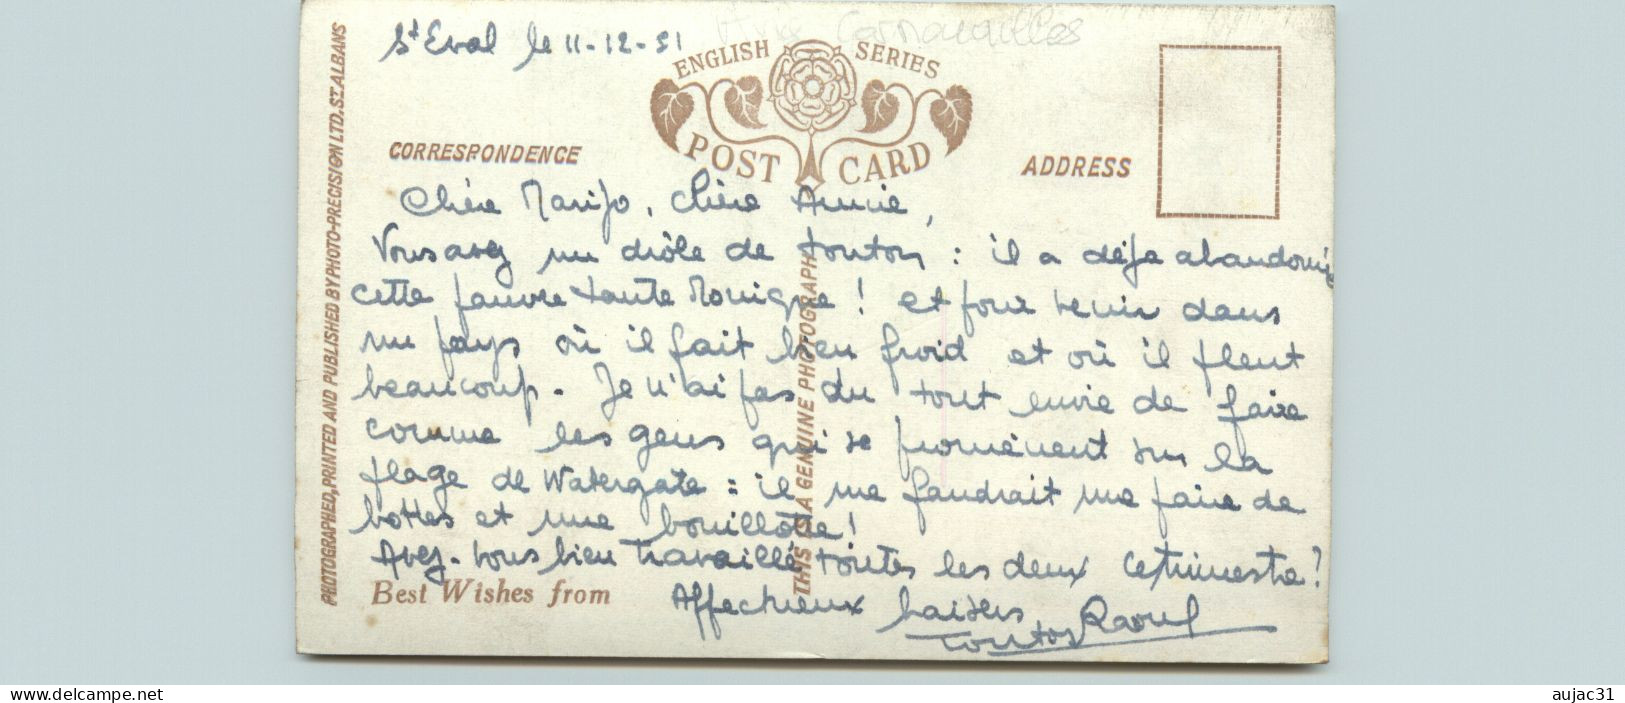 St Eval le 11-12-51
Carnavailles
ENGLISH SERIES
POST CARD
CORRESPONDENCE
ADDRESS
Chère Marijo, chère Annie,
Vous avez un drôle de tonton : il a déjà abandonné
cette pauvre tante Monique ! et pour venir dans
un pays où il fait bien froid et où il pleut
beaucoup. Je n'ai pas du tout envie de faire
comme les gens qui se promènent sur la
plage de Watergate : il me faudrait une paire de
bottes et une bouillotte !
Avez-vous bien travaillé toutes les deux ce trimestre ?
Best Wishes from
Affectueux baisers
Tonton Raoul
PHOTOGRAPHED, PRINTED AND PUBLISHED BY PHOTO-PRECISION LTD. ST. ALBANS
THIS IS A GENUINE PHOTOGRAPH
www.delcampe.net
aujac31